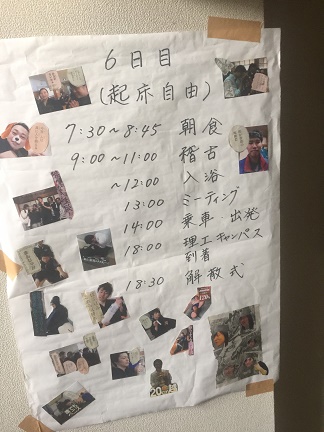 6日目
(起床自由)
7:30～8:45 朝食
9:00～11:00 稽古
～12:00 入浴
13:00 ミーティング
14:00 乗車・出発
18:00 理工キャンパス
到着
18:30 解散式